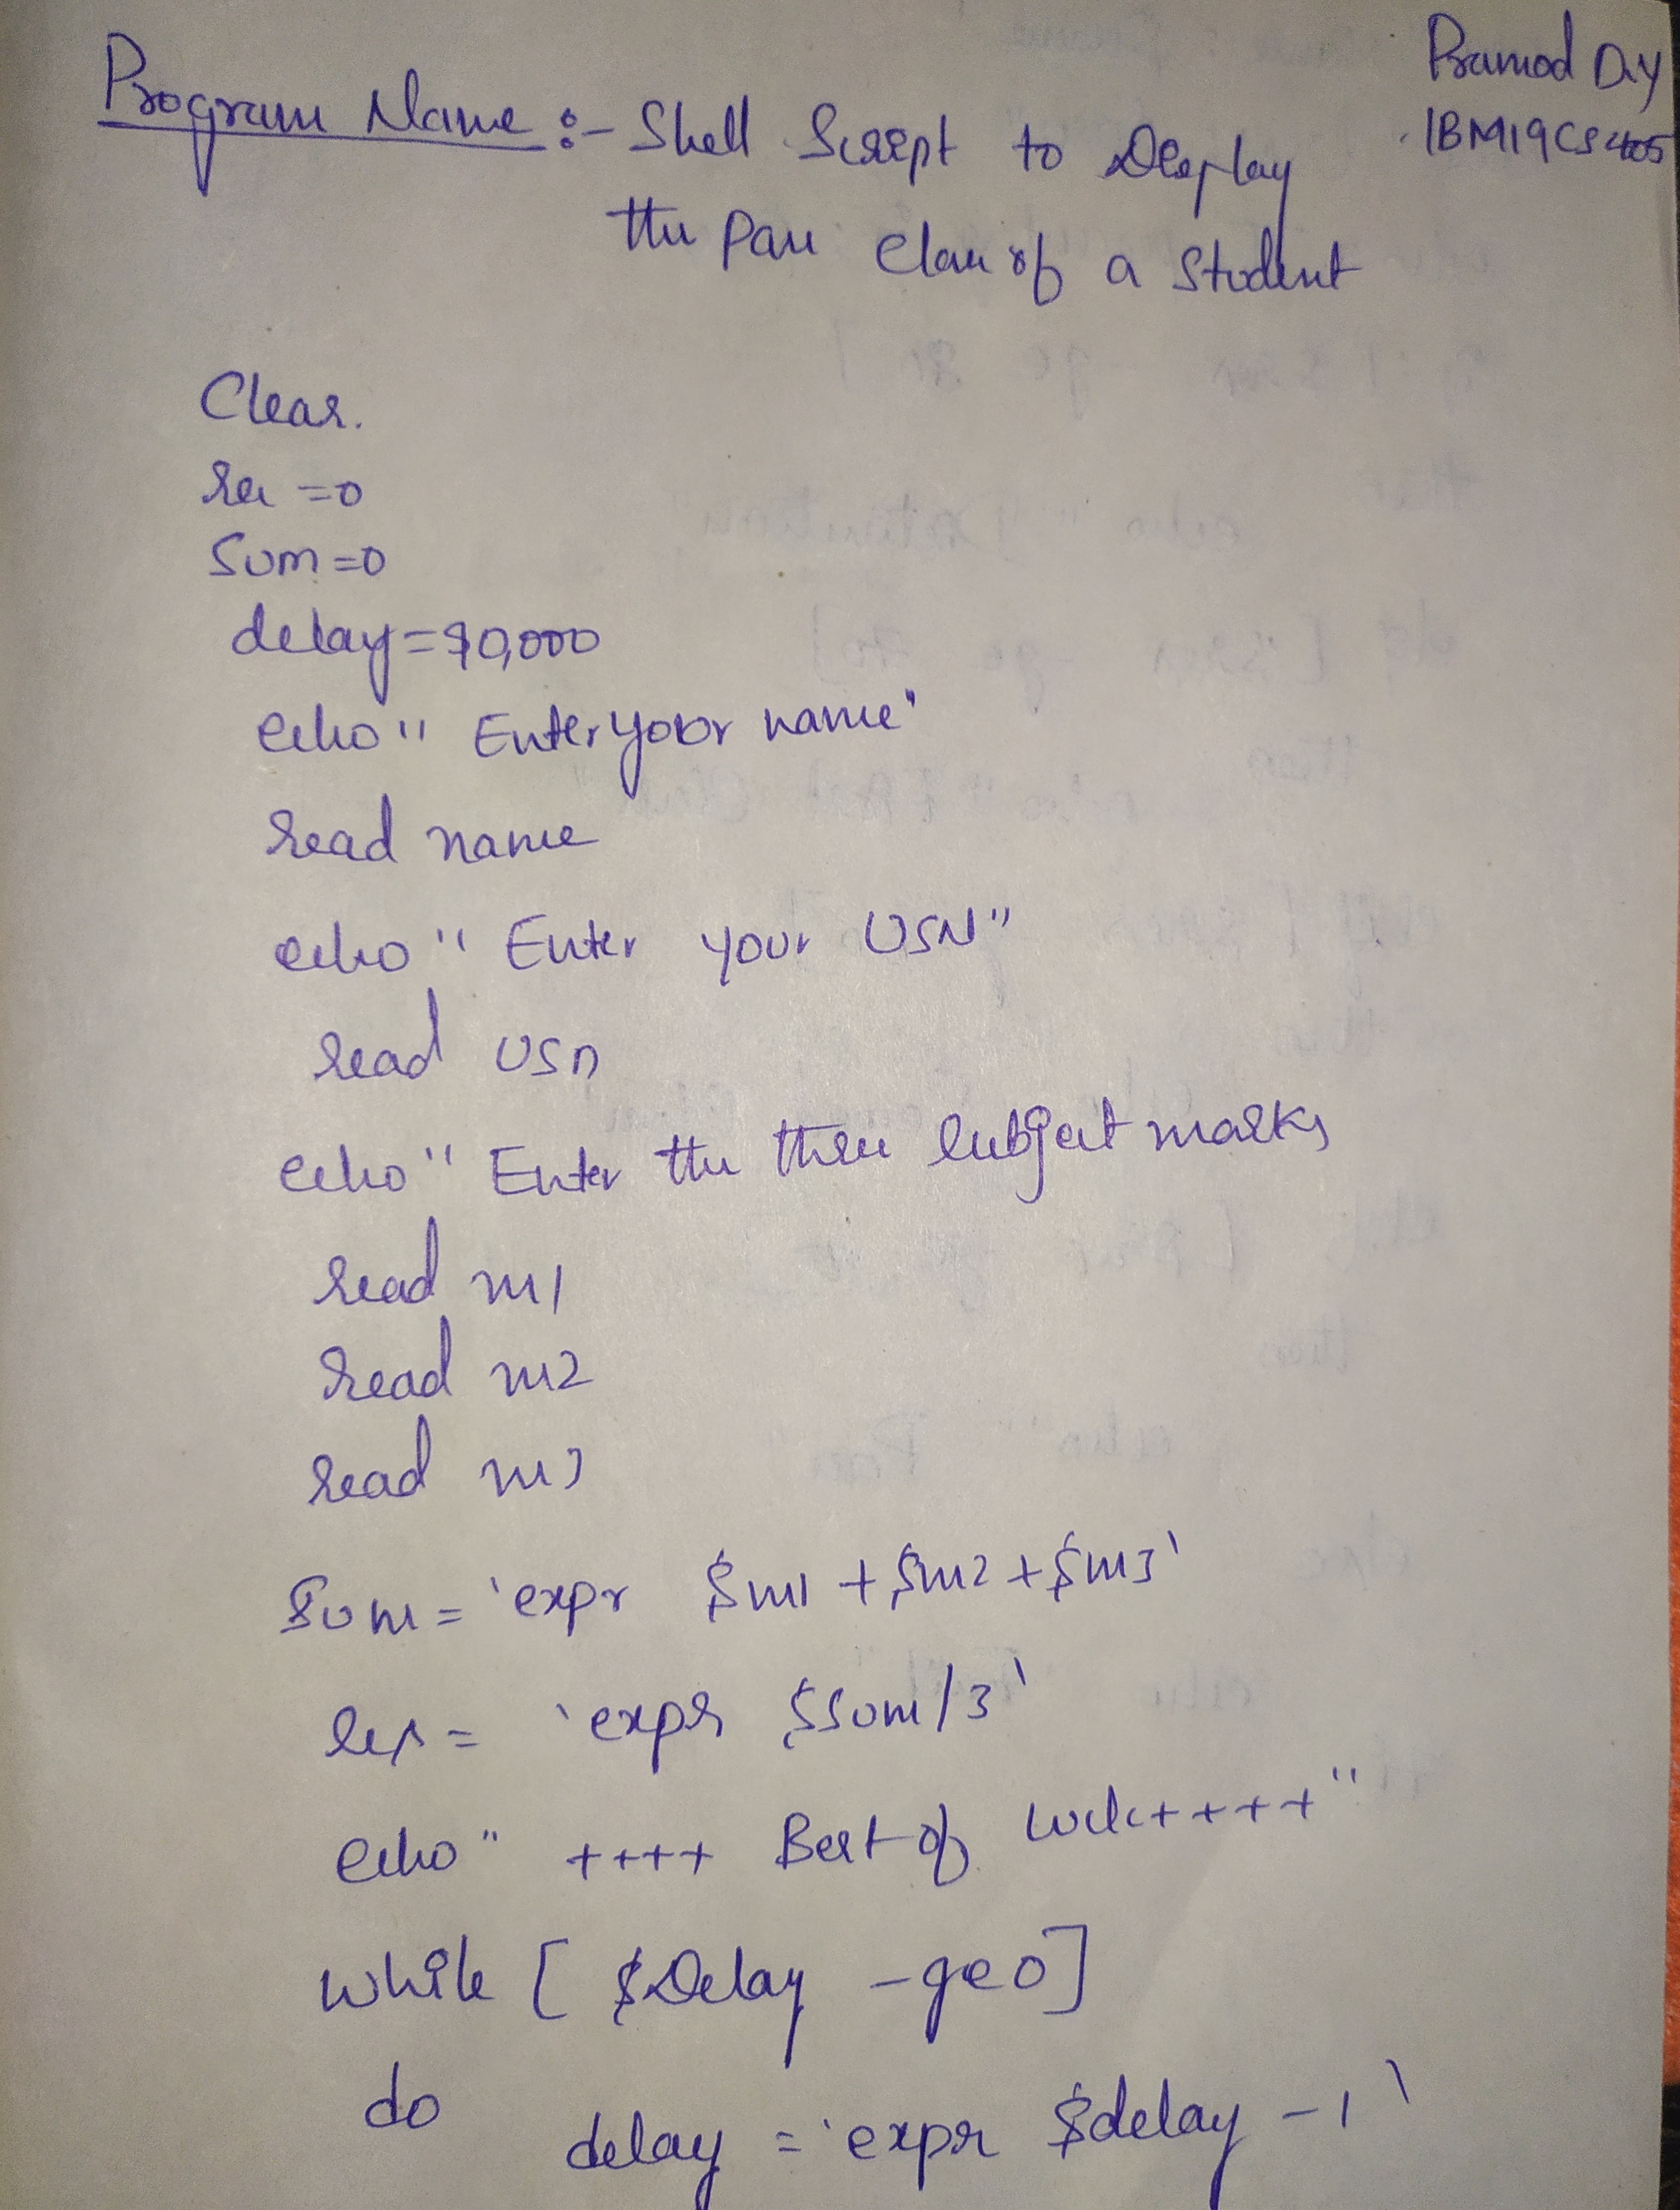 Pramod D.Y
1BM19CS405
Program Name :- Shell Script to Display
the Pass Class of a Student
Clear.
res =0
Sum=0
delay=90,000
echo " Enter your name"
read name
echo " Enter your USN"
read usn
echo " Enter the three subject marks
read m1
read m2
read m3
Sum= `expr $m1 + $m2 + $m3`
res = `expr $sum/3`
echo " ++++ Best of luck++++"
while [ $Delay -ge 0]
do
delay = `expr $delay -1`